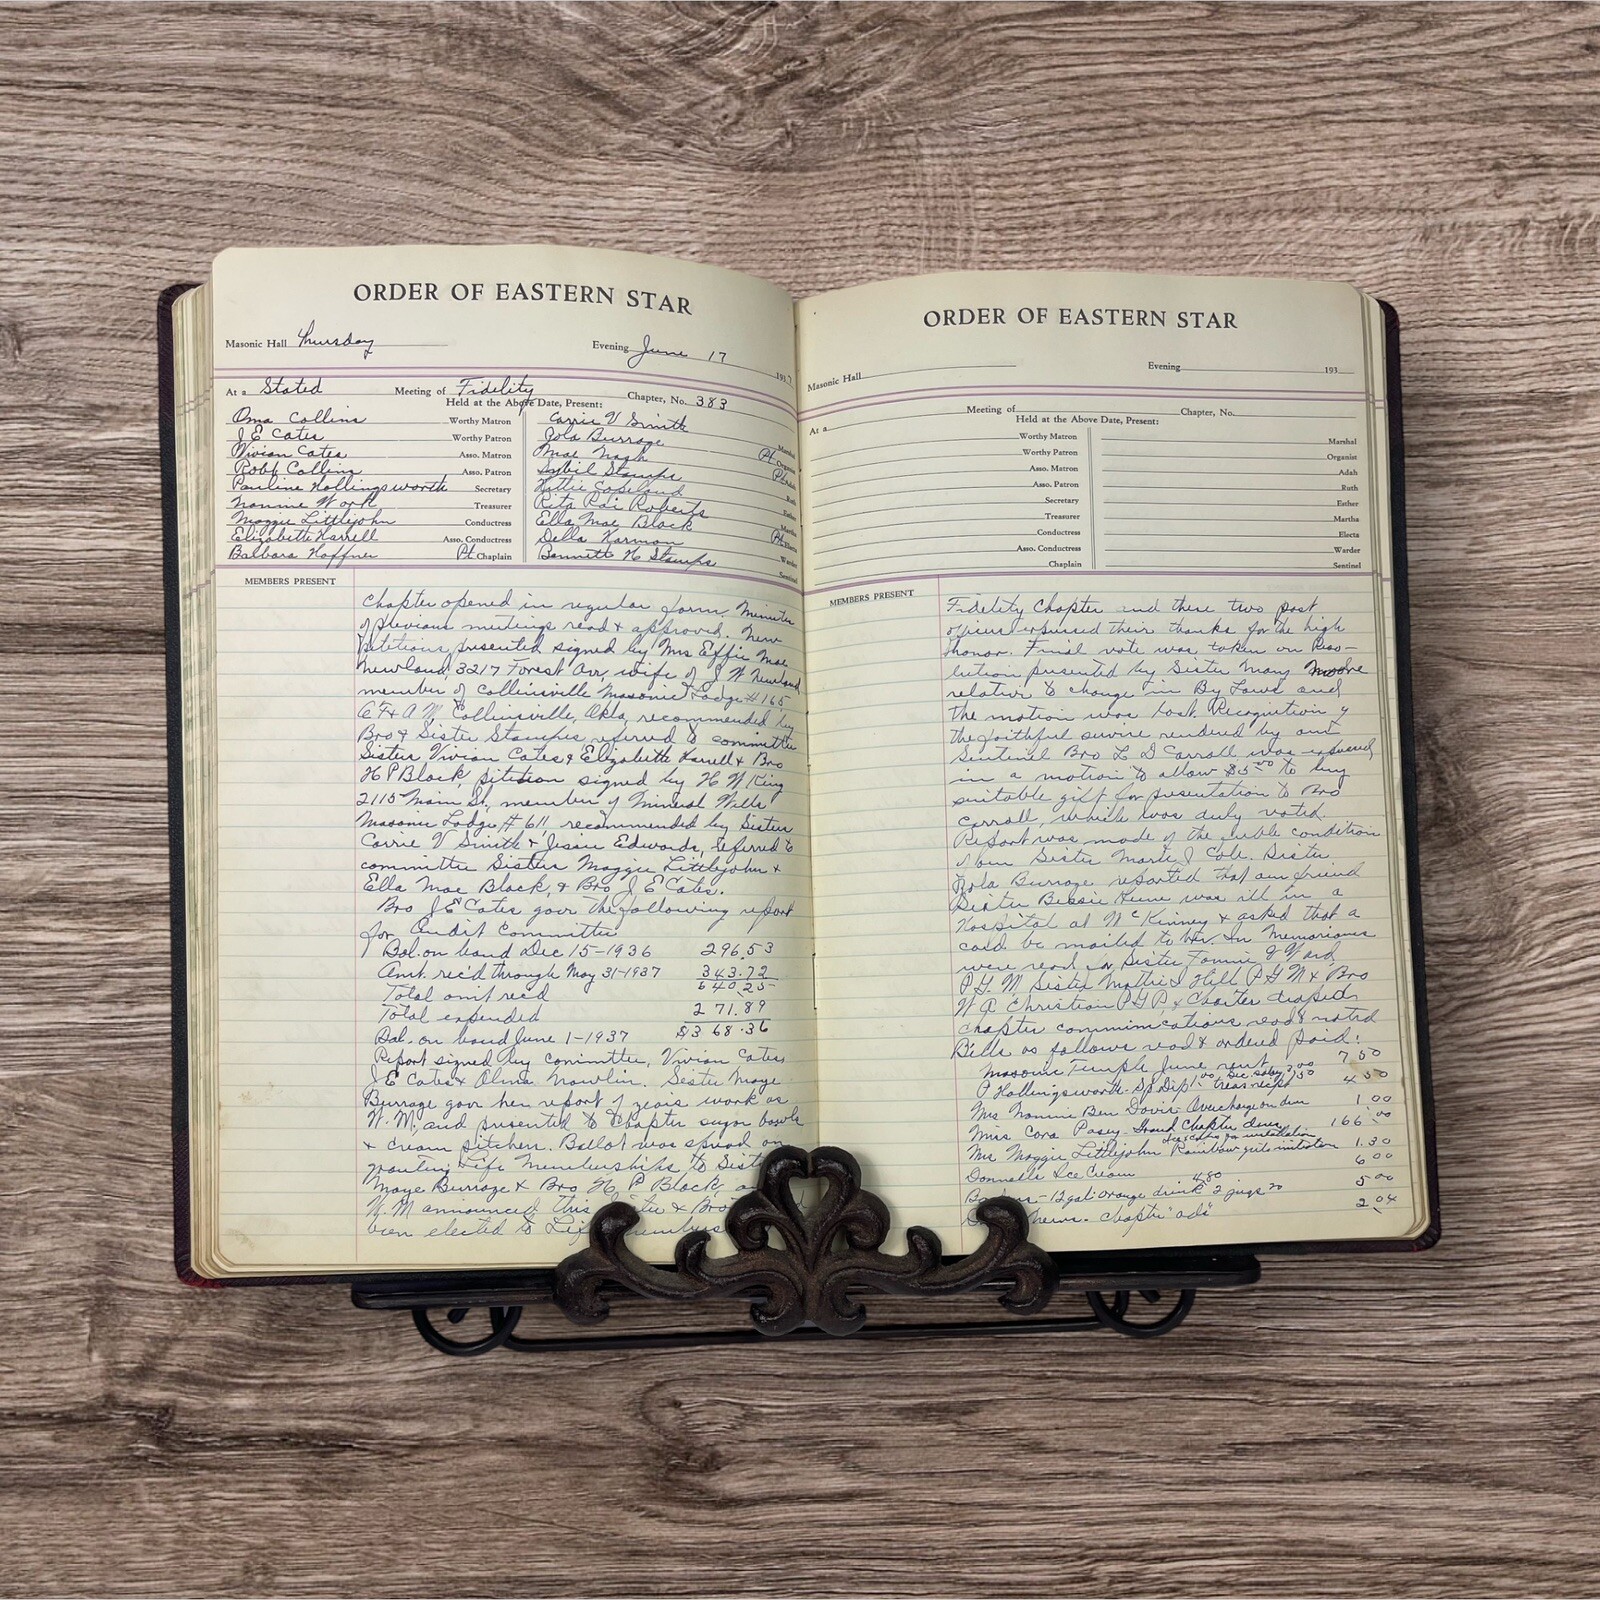 ORDER OF EASTERN STAR
Masonic Hall Thursday Evening June 17 1937
At a Stated Meeting of Fidelity Chapter, No. 383
Held at the Above Date, Present:
Oma Collins Worthy Matron
J E Cates Worthy Patron
Vivian Cates Asso. Matron
Robt Collins Asso. Patron
Pauline Hollingsworth Secretary
Nannie Work Treasurer
Maggie Littlejohn Conductress
Elizabeth Harrell Asso. Conductress
Balbara Hoffner Pt Chaplain
Carrie V Smith Marshal
Rola Burrage Pt Organist
Mae Nash Pt Adah
Sybil Stamps Ruth
Hattie Copeland Esther
Rita Rai Roberts Martha
Ella Mae Black Pt Electa
Della Harmon Warder
Bennett H Stamps Sentinel
MEMBERS PRESENT
Chapter opened in regular form. Minutes
of previous meetings read & approved. New
petitions presented signed by Mrs Effie Mae
Newland, 3217 Forest Ave, wife of J W Newland
member of Collinsville Masonic Lodge #165
A F & A M Collinsville, Okla, recommended by
Bro & Sister Stamps, referred to committee
Sisters Vivian Cates & Elizabeth Harrell & Bro
H P Black, petition signed by H W King
2115 Main St, member of Mineral Wells
Masonic Lodge # 611, recommended by Sisters
Carrie V Smith & Jessie Edwards, referred to
committee Sisters Maggie Littlejohn &
Ella Mae Black, & Bro J E Cates.
Bro J E Cates gave the following report
for Audit Committee
Bal. on hand Dec 15-1936 296.53
Amt. rec'd through May 31-1937 343.72
Total amt recd 640.25
Total expended 271.89
Bal. on hand June 1-1937 $368.36
Report signed by committee, Vivian Cates
J E Cates & Olma Nowlin. Sister Maye
Burrage gave her report of years work as
W. M. and presented to Chapter sugar bowls
& cream pitchers. Ballot was spread on
granting Life Memberships to Sister
Maye Burrage & Bro H. P Black, a
W. M announced this Sister & Bro
been elected to Life members
ORDER OF EASTERN STAR
Masonic Hall Evening 193
At a Meeting of Chapter, No.
Held at the Above Date, Present:
Worthy Matron
Worthy Patron
Asso. Matron
Asso. Patron
Secretary
Treasurer
Conductress
Asso. Conductress
Chaplain
Marshal
Organist
Adah
Ruth
Esther
Martha
Electa
Warder
Sentinel
MEMBERS PRESENT
Fidelity Chapter and these two past
officers expressed their thanks for the high
honor. Final vote was taken on Reso-
lution presented by Sister Mary Moore
relative to change in By Laws and
the motion was lost. Recognition of
the faithful service rendered by our
Sentinel Bro L D Carroll was expressed
in a motion to allow $5.00 to buy
suitable gift for presentation to Bro
Carroll, which was duly voted.
Report was made of the feeble condition
of our Sister Marie J Cole. Sister
Rola Burrage reported that our friend
Sister Bessie was ill in a
Hospital at McKinney & asked that a
card be mailed to her. In Memoriams
were read for Sister Fannie G Ward
P. G. M Sister Mattie Hill P G M & Bro
W A Christian P G P, & Charter draped
chapter communications read & noted
Bills as follows read & ordered paid:
Masonic Temple June rent 7.50
P Hollingsworth - Sp Dep 1.00, Sec. salary 3.00 treas. recpts .50 4.50
Mrs Nannie Ben Davis - Overcharge on dues 1.00
Miss Cora Posey - Grand Chapter dues 166.00
Mrs Maggie Littlejohn Rainbow girls initiation 1.30
Donnells Ice Cream 6.00
12 gal. orange drink 4.80 2 jugs 20 5.00
news. chapter "ads" 2.04